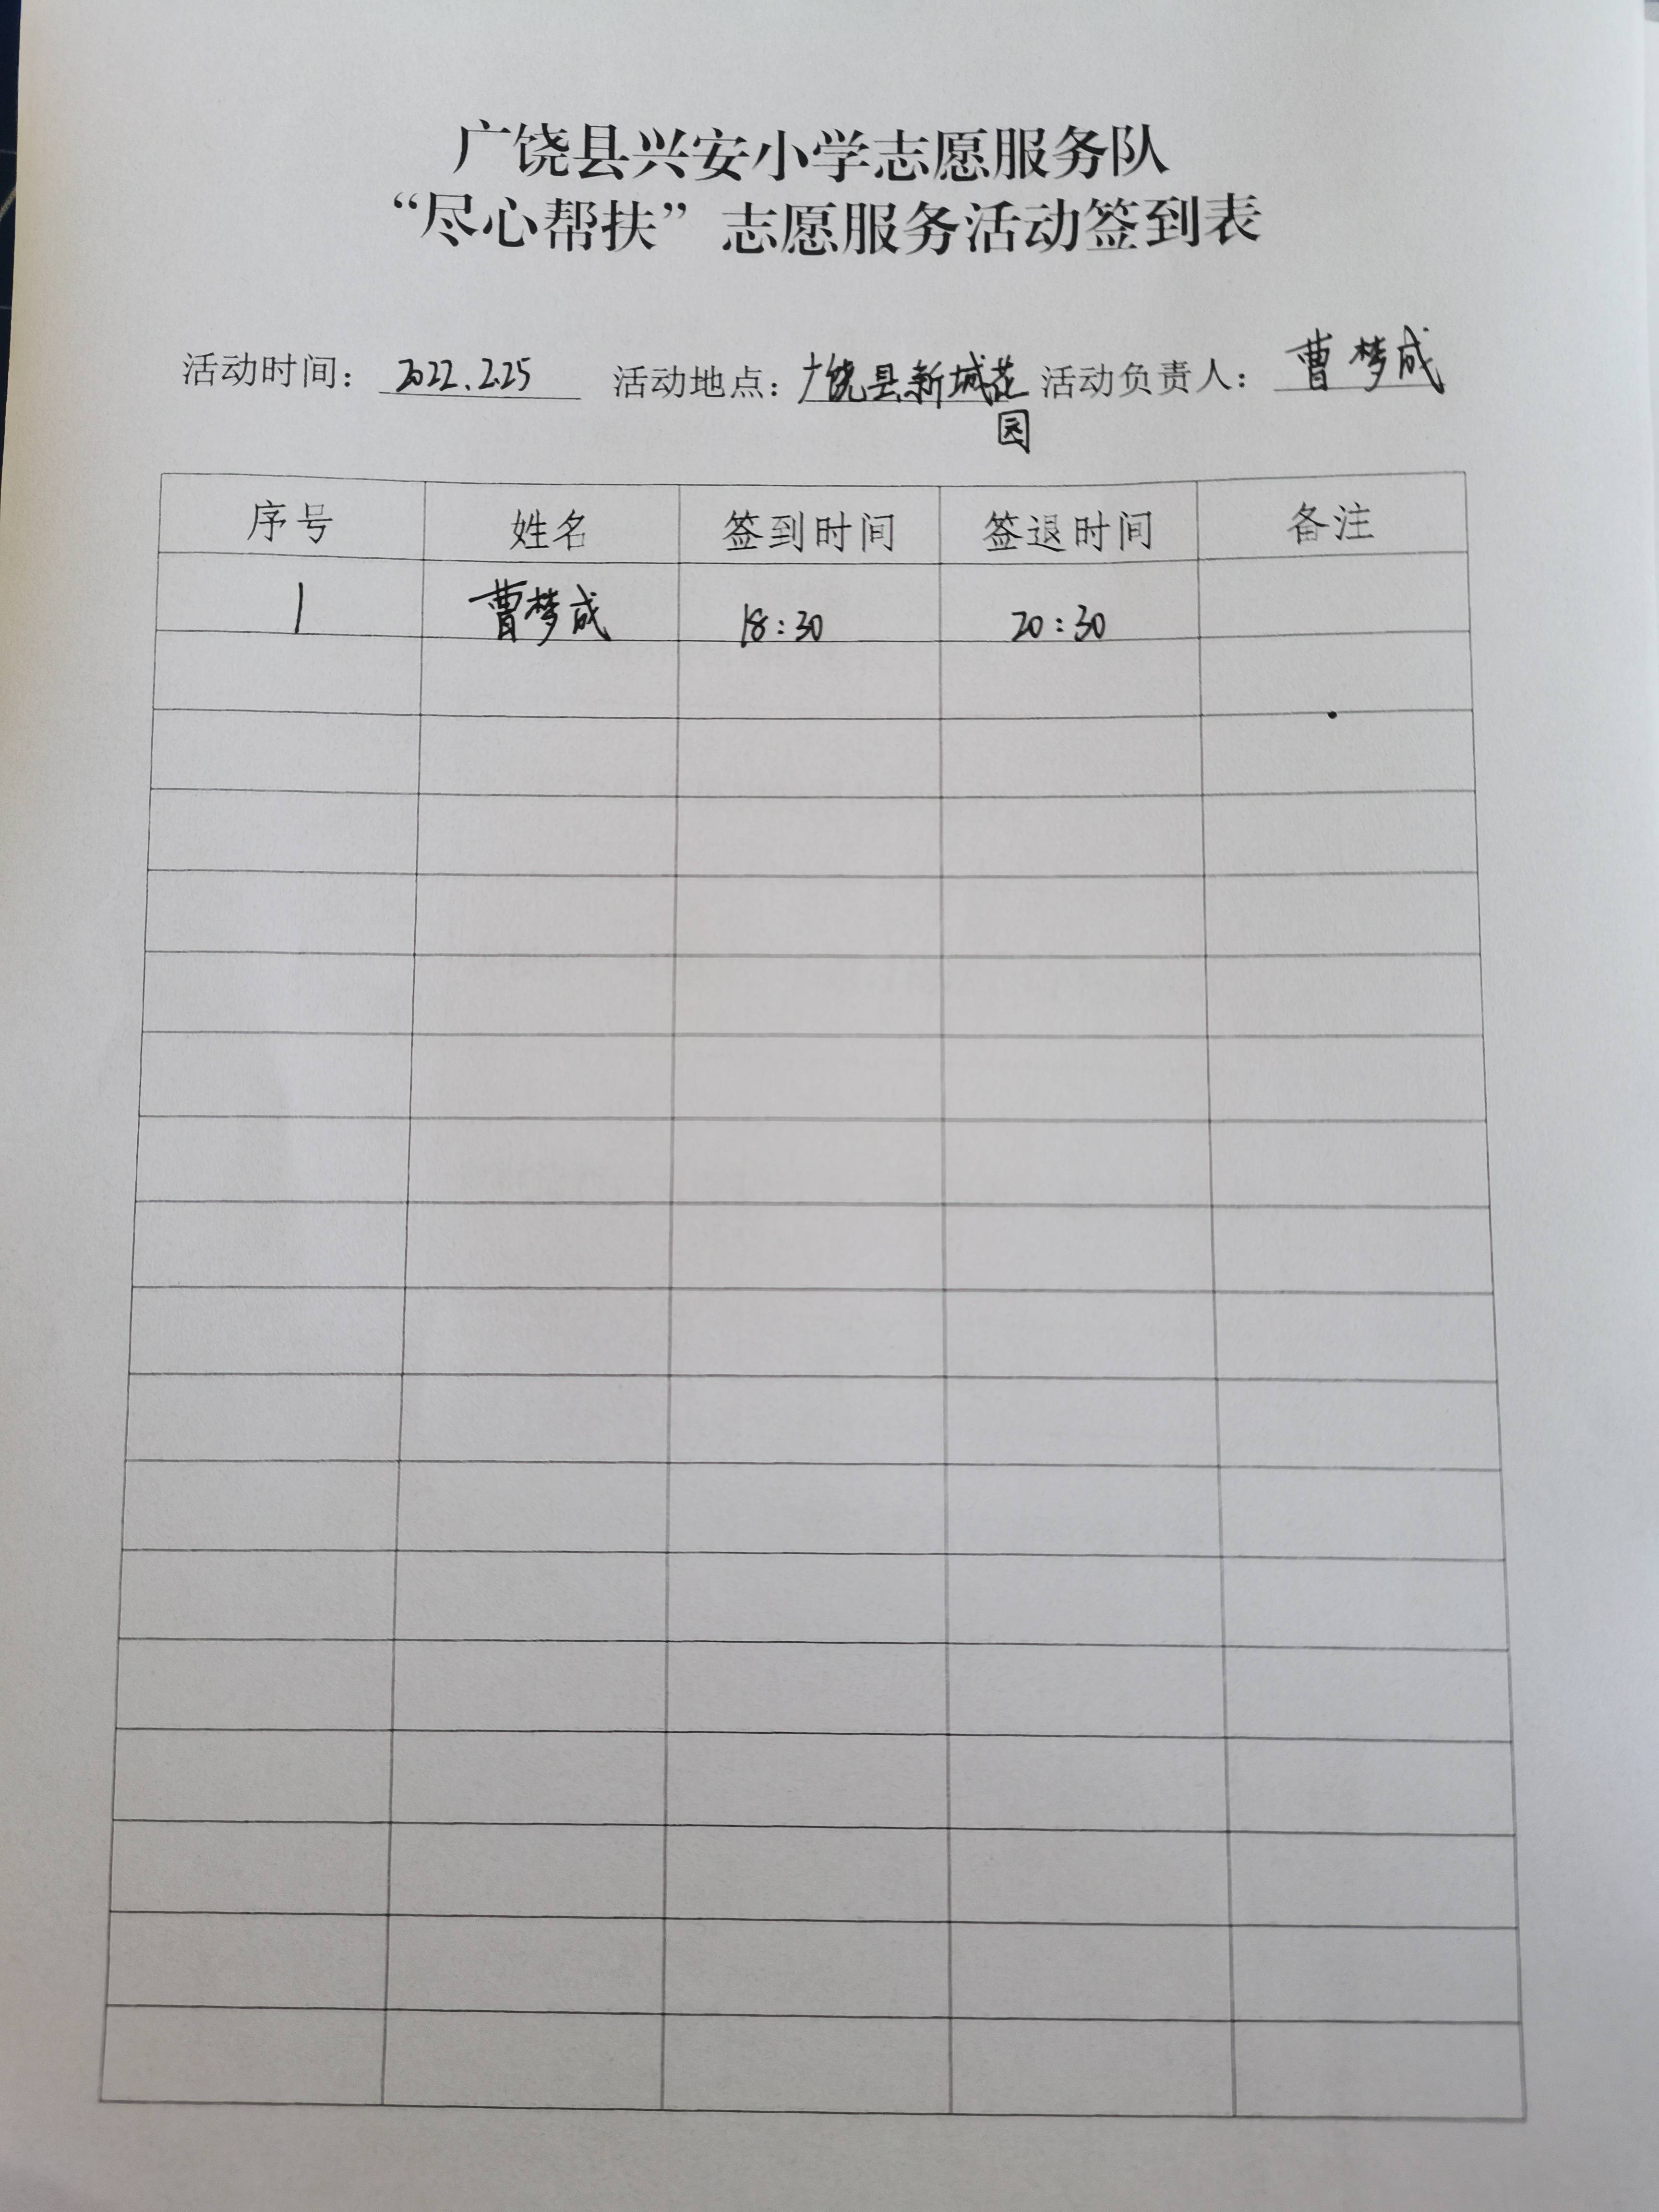 广饶县兴安小学志愿服务队
“尽心帮扶”志愿服务活动签到表
活动时间：2022.2.25 活动地点：广饶县新城花园 活动负责人：曹梦成
序号 姓名 签到时间 签退时间 备注
1 曹梦成 18:30 20:30